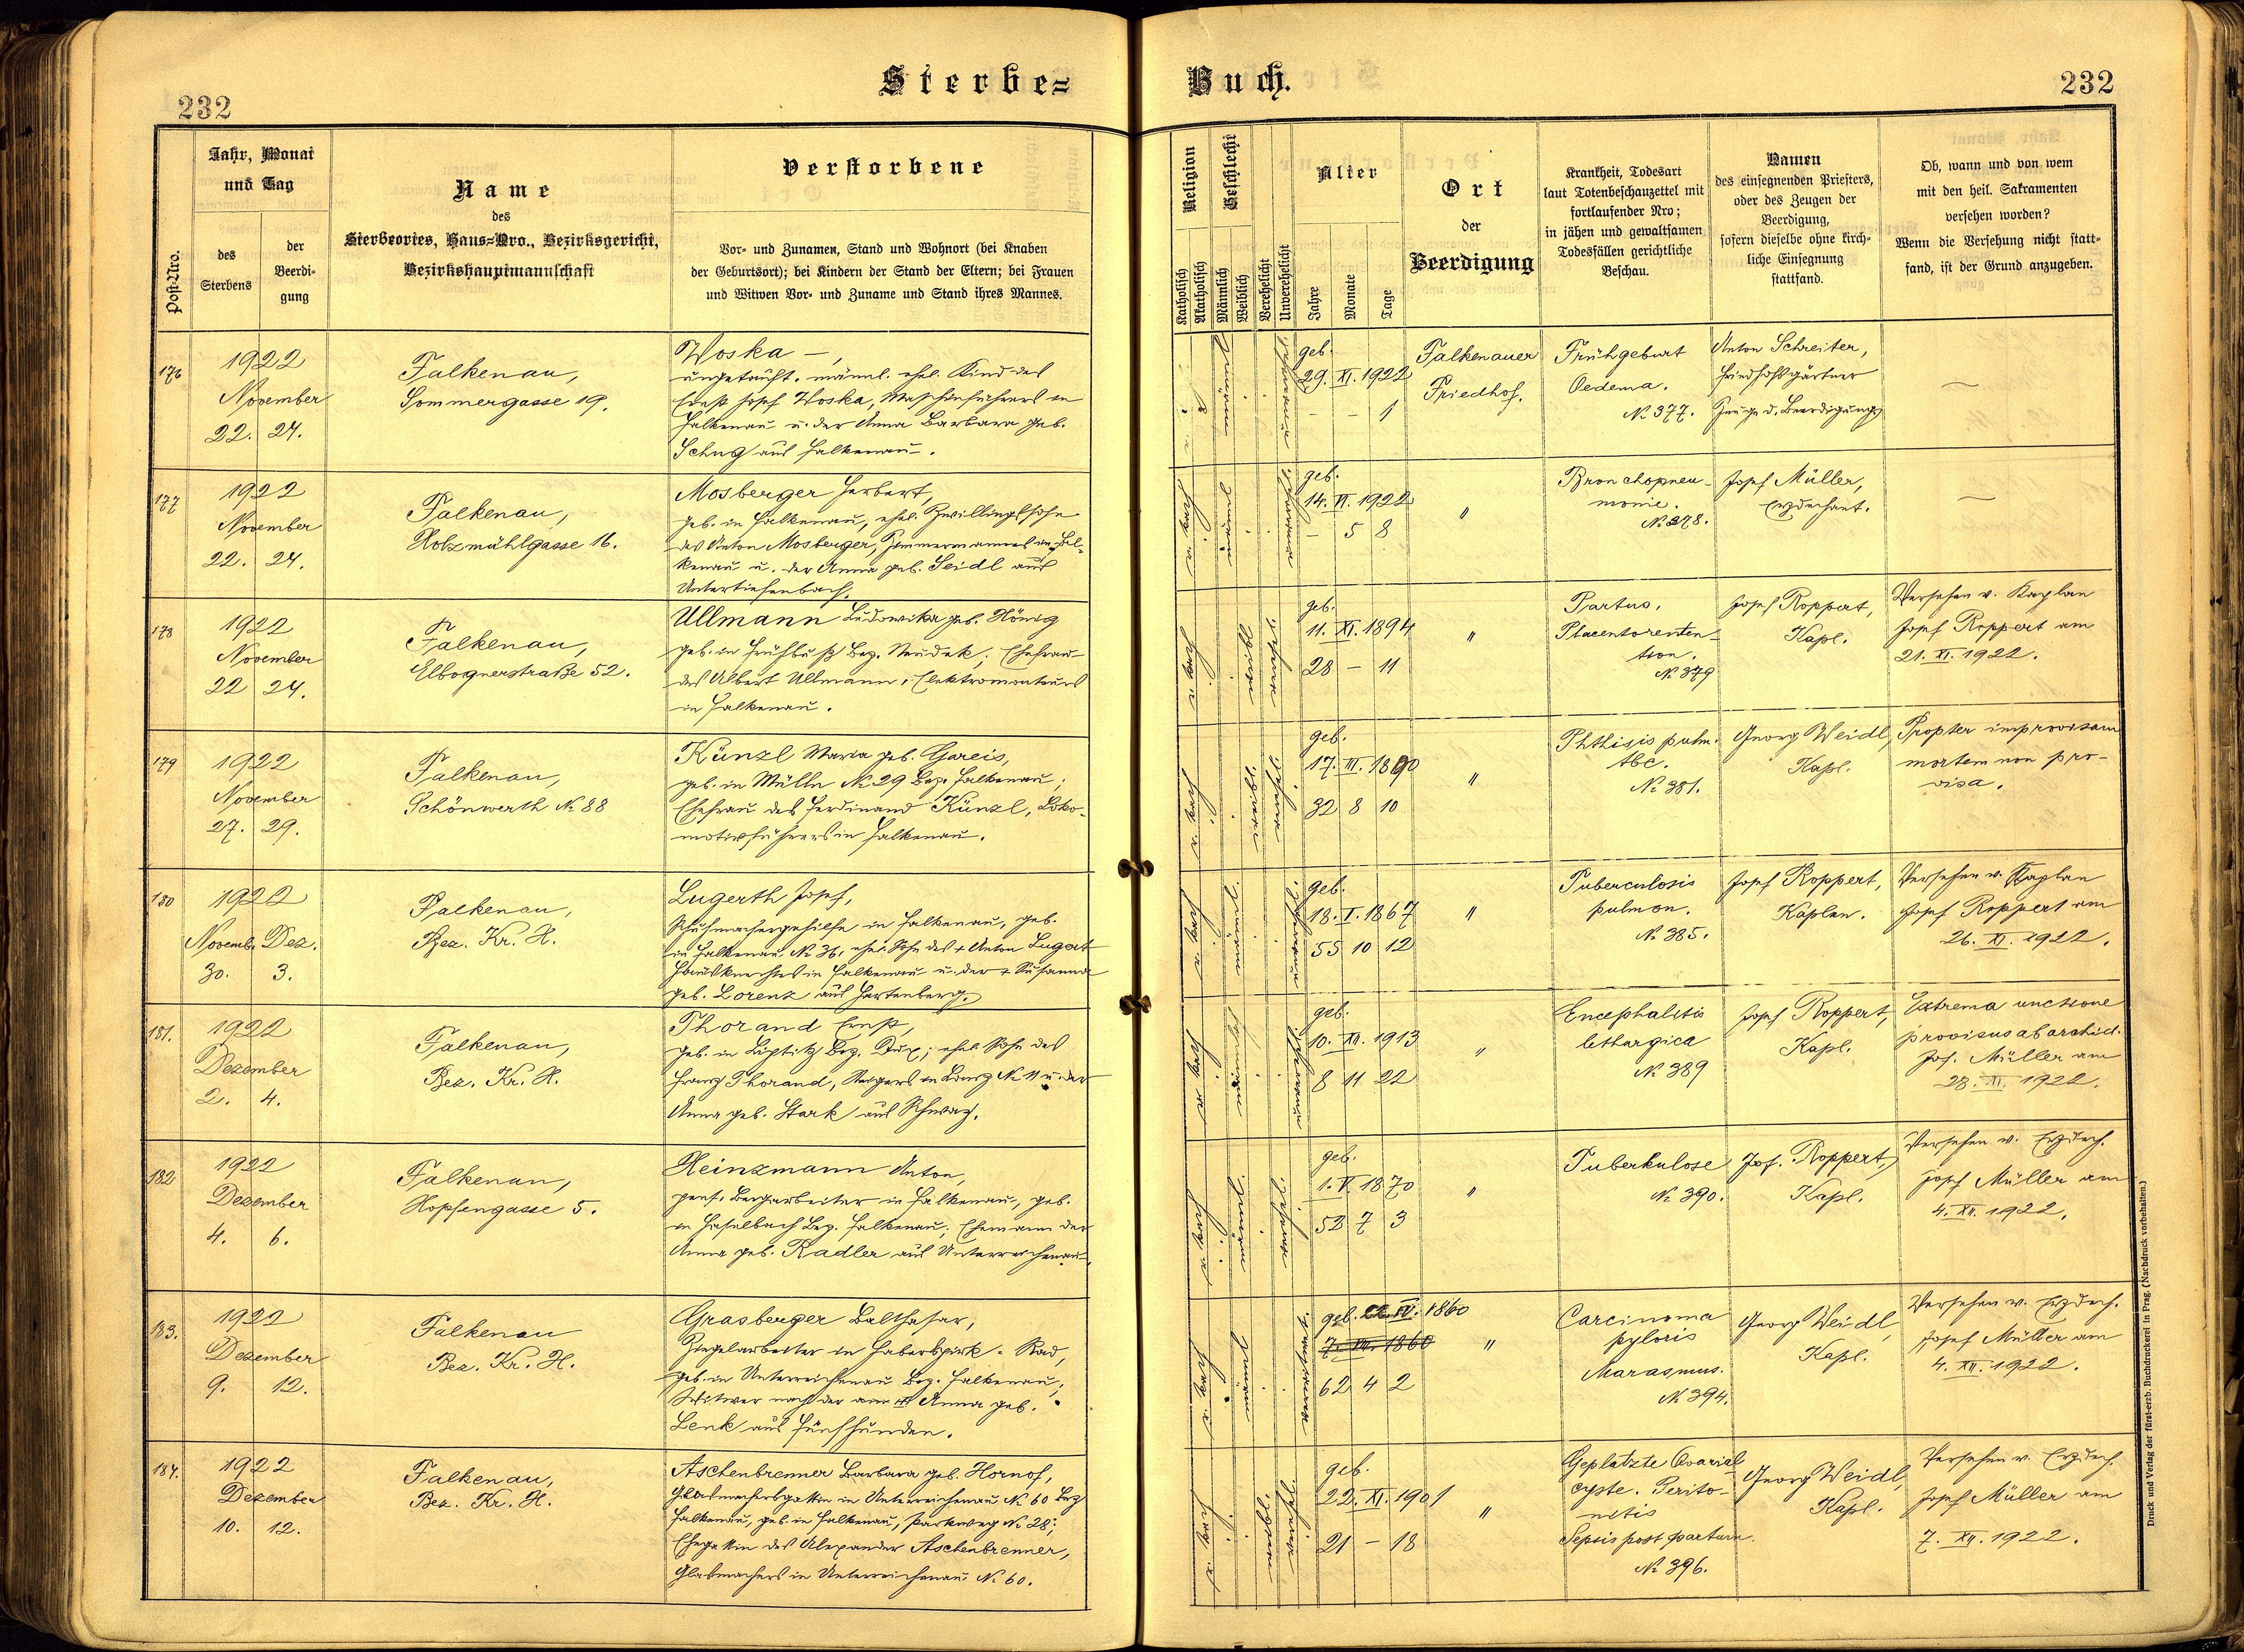 Sterbe=
Buch.
232
232
Post-Nro.
Jahr, Monat
und Tag
des
Sterbens
der
Beerdi-
gung
Name
des
Sterbeortes, Haus=Nro., Bezirksgericht,
Bezirkshauptmannschaft
Verstorbene
Vor- und Zunamen, Stand und Wohnort (bei Knaben
der Geburtsort); bei Kindern der Stand der Eltern; bei Frauen
und Witwen Vor- und Zuname und Stand ihres Mannes.
Religion
Katholisch
Akatholisch
Geschlecht
Männlich
Weiblich
Verehelicht
Unverehelicht
Alter
Jahre
Monate
Tage
Ort
der
Beerdigung
Krankheit, Todesart
laut Totenbeschauzettel mit
fortlaufender Nro;
in jähen und gewaltsamen
Todesfällen gerichtliche
Beschau.
Namen
des einsegnenden Priesters,
oder des Zeugen der
Beerdigung,
sofern dieselbe ohne kirch-
liche Einsegnung
stattfand.
Ob, wann und von wem
mit den heil. Sakramenten
versehen worden?
Wenn die Versehung nicht statt-
fand, ist der Grund anzugeben.
176
1922
November
22. 24.
Falkenau,
Sommergasse 19.
Woska –,
ungetauft. männl. ehel. Kind des
Ernst Josef Woska, Maschinführers in
Falkenau u. der Anna Barbara geb.
Schug aus Falkenau.
geb.
29. XI. 1922
– – 1
Falkenauer
Friedhof.
Frühgeburt
Oedema.
№ 377.
Anton Schreiter,
Friedhofsgärtner
Zeuge d. Beerdigung
–
177
1922
November
22. 24.
Falkenau,
Holzmühlgasse 16.
Mosberger Herbert,
geb. in Falkenau, ehel. Zwillingssohn
des Anton Mosberger, Zimmermannes in Fal-
kenau u. der Anna geb. Seidl aus
Untertiefenbach.
geb.
14. VI. 1922
– 5 8
"
Bronchopneu-
monie.
№ 378.
Josef Müller,
Erzdechant.
–
178
1922
November
22 24.
Falkenau,
Elbognerstraße 52.
Ullmann Ludowika geb. Hönig
geb. in Frühbuß Bez. Neudek; Ehefrau
des Albert Ullmann, Elektromonteurs
in Falkenau.
geb.
11. XI. 1894
28 – 11
"
Partus.
Placentoretten-
tion.
№ 379
Josef Roppert,
Kapl.
Versehen v. Kaplan
Josef Roppert am
21. XI. 1922.
179
1922
November
27. 29.
Falkenau,
Schönwerth № 88
Künzl Maria geb. Gareis,
geb. in Mülln № 29 Bez. Falkenau;
Ehefrau des Ferdinand Künzl, Loko-
motivführers in Falkenau.
geb.
17. III. 1890
32 8 10
"
Phthisis pulm.
tbc.
№ 381.
Georg Weidl,
Kapl.
Propter improvisam
mortem non pro-
visa.
180
1922
Novemb. Dez.
30. 3.
Falkenau,
Bez. Kr. H.
Lugerth Josef,
Schuhmachergehilfe in Falkenau, geb.
in Falkenau № 36, ehel. Sohn des + Anton Lugert
Hausknechtes in Falkenau u. der + Susanna
geb. Lorenz aus Hartenberg.
geb.
18. I. 1867
55 10 12
"
Tuberculosis
pulmon.
№ 385.
Josef Roppert,
Kaplan.
Versehen v. Kaplan
Josef Roppert am
26. XI. 1922.
181.
1922
Dezember
2. 4.
Falkenau,
Bez. Kr. H.
Thorand Ernst,
geb. in Liptitz Bez. Dux; ehel. Sohn des
Franz Thorand, Steigers in № 11 u. der
Anna geb. Stark aus Schwaz.
geb.
10. XII. 1913
8 11 22
"
Encephalitis
lethargica
№ 389
Josef Roppert,
Kapl.
Extrema unctione
provisus ab archid.
Jos. Müller am
28. XI. 1922.
182
1922
Dezember
4. 6.
Falkenau,
Hopfengasse 5.
Heinzmann Anton,
pens. Bergarbeiter in Falkenau, geb.
in Haselbach Bez. Falkenau; Ehemann der
Anna geb. Radler aus Unterreichenau.
geb.
1. V. 1870
52 7 3
"
Tuberkulose
№ 390.
Jos. Roppert,
Kapl.
Versehen v. Erzdech.
Josef Müller am
4. XII. 1922.
183.
1922
Dezember
9. 12.
Falkenau
Bez. Kr. H.
Grasberger Balthasar,
Ziegelarbeiter in Haberspirk-Rad,
geb. in Unterreichenau Bez. Falkenau;
Witwer nach der Anna geb.
Lenk aus Fünfhunden.
geb. IV. 1860
7. 1860
62 4 2
"
Carcinoma
pyloris
Marasmus.
№ 394.
Georg Weidl,
Kapl.
Versehen v. Erzdech.
Josef Müller am
4. XII. 1922.
184.
1922
Dezember
10. 12.
Falkenau,
Bez. Kr. H.
Aschenbrenner Barbara geb. Hornof,
Glasmachersgattin in Unterreichenau № 60 Bez
Falkenau, geb. in Falkenau, Parkweg № 28;
Ehegattin des Alexander Aschenbrenner,
Glasmachers in Unterreichenau № 60.
geb.
22. XI. 1901
21 – 18
"
Geplatzte Ovarial-
cyste. Perito-
nitis
Sepsis post partum.
№ 396.
Georg Weidl,
Kapl.
Versehen v. Erzdech.
Josef Müller am
7. XII. 1922.
Druck und Verlag der fürst-erzb. Buchdruckerei in Prag. (Nachdruck vorbehalten.)